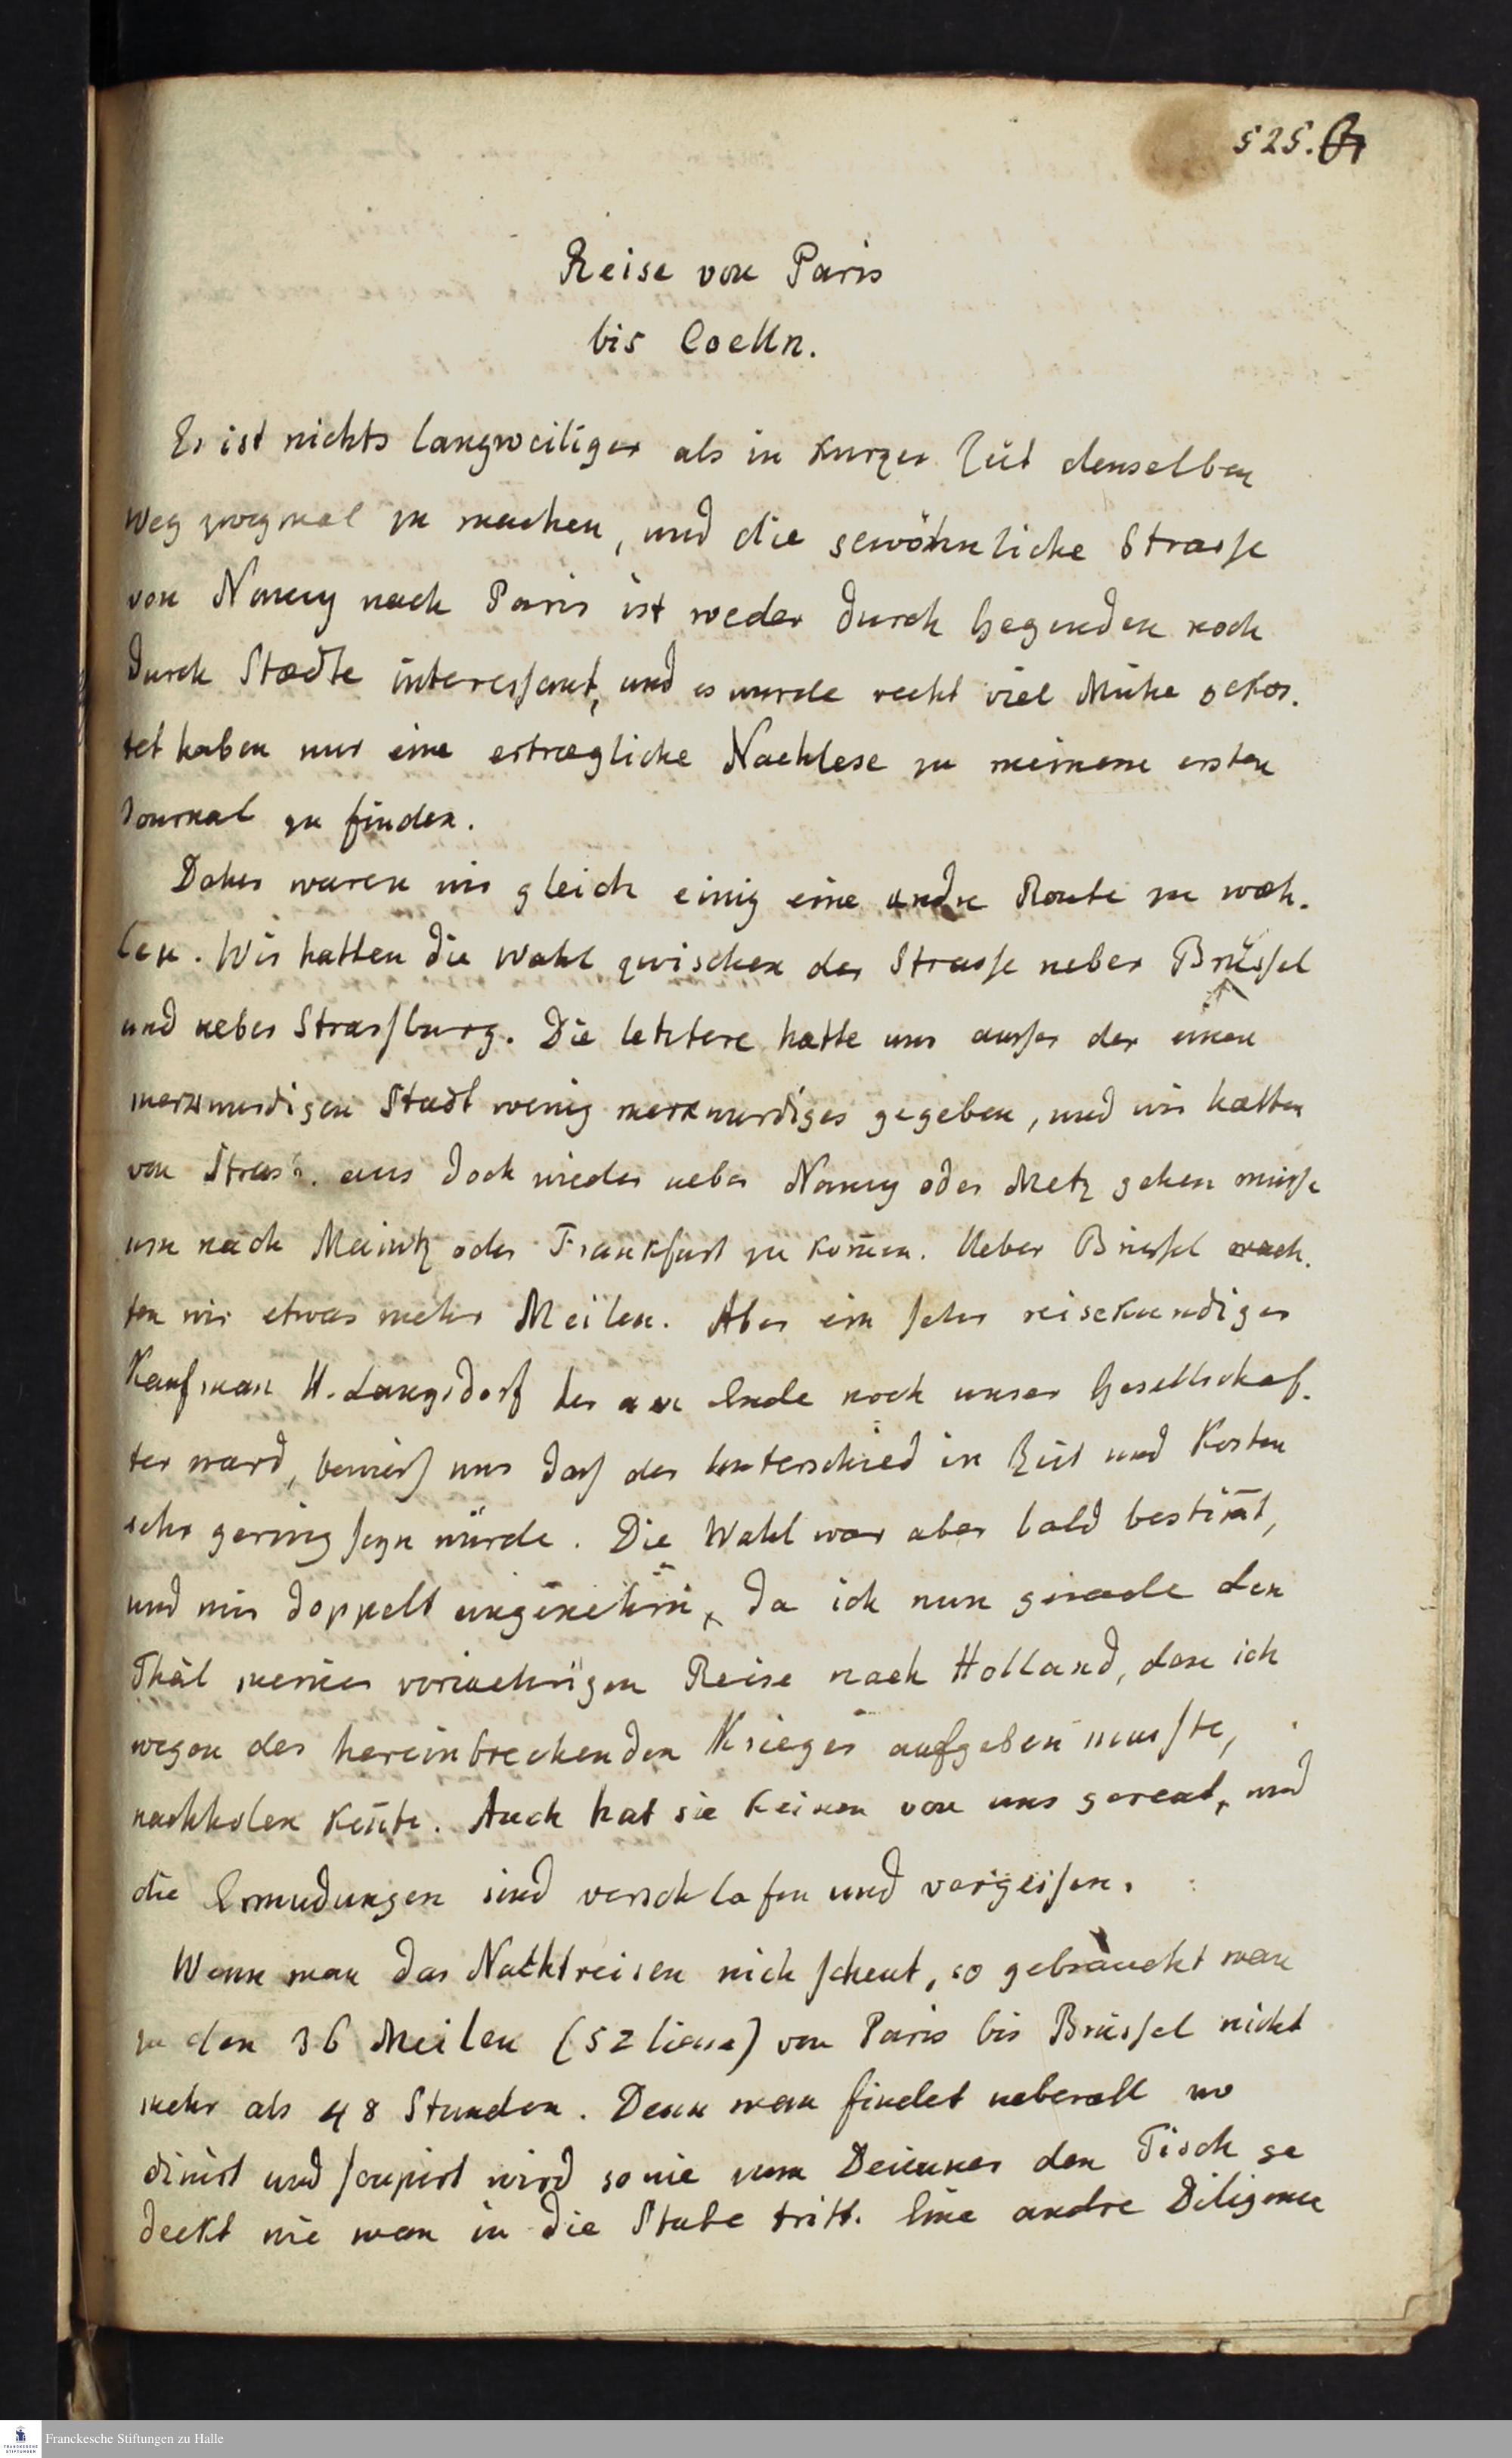 525.
Reise von Paris
bis Coelln.
Es ist nichts langweiliger als in kurzer Zeit denselben
Weg zweymal zu machen, und die gewöhnliche Strasse
von Nancy nach Paris ist weder durch Gegenden noch
durch Stædte interessant, und es wurde recht viel Mühe gekos-
tet haben nur eine ertraegliche Nachlese zu meinem ersten
Journal zu finden.
Daher waren wir gleich einig eine andre Route zu wæh-
len. Wir hatten die Wahl zwischen der Strasse ueber Brüssel
und ueber Strassburg. Die letztere hatte uns ausser der einen
merkwurdigen Stadt wenig merkwurdiges gegeben, und wir hætten
von Strasb. aus doch wieder ueber Nancy oder Metz gehen müsse
um nach Maintz oder Frankfurt zu kom̄en. Ueber Brüssel mach-
ten wir etwas mehr Meilen. Aber ein sehr reisekundiger
Kaufman H. Langsdorf der am Ende noch unser Gesellschaf-
ter ward, bewiess uns dass der Unterschied in Zeit und Kosten
sehr gering seyn würde. Die Wahl war aber bald bestim̄t,
und mir doppelt angenehm, da ich nun gerade den
Theil meiner vorjaehrigen Reise nach Holland, den ich
wegen des hereinbrechenden Krieges aufgeben musste,
nachholen kon̄te. Auch hat sie keinen von uns gereut, und
die Ermudungen sind verschlafen und vergessen.
Wenn man das Nachtreisen nich scheut, so gebraucht man
zu den 36 Meilen (52 lieue) von Paris bis Brüssel nicht
mehr als 48 Stunden. Denn man findet ueberall wo
dinirt und soupirt wird so wie zum Dejeuner den Tisch ge
deckt wie man in die Stube tritt. Eine andre Diligence
Franckesche Stiftungen zu Halle